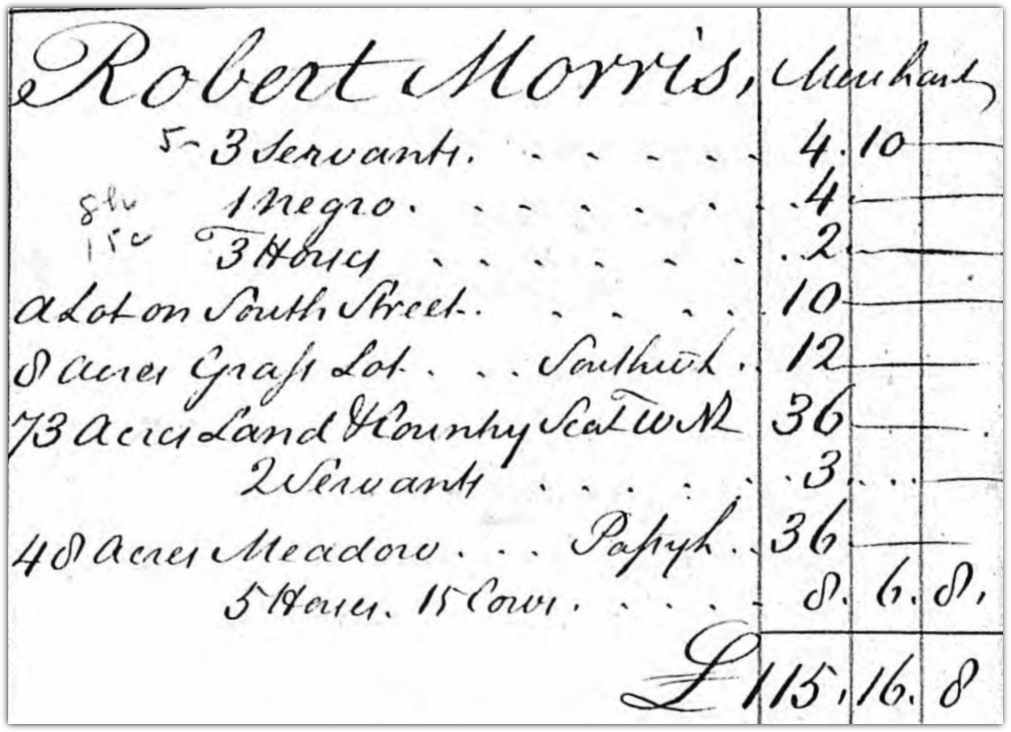 Robert Morris, Merchant
5- 3 Servants. . . . . . 4. 10 —
1 Negro. . . . . . . 4 —
3 Horses . . . . . . . 2 —
a Lot on South Street. . . . . 10 —
8 acres Graſs Lot . . . Southwk . . 12 —
73 Acres Land & Country Seat W NL 36 —
2 Servants . . . . . . 3 . . . —
48 Acres Meadow . . . Paſsyk . . 36 —
5 Horses. 15 Cows. . . . . . 8. 6. 8.
£ 115. 16. 8